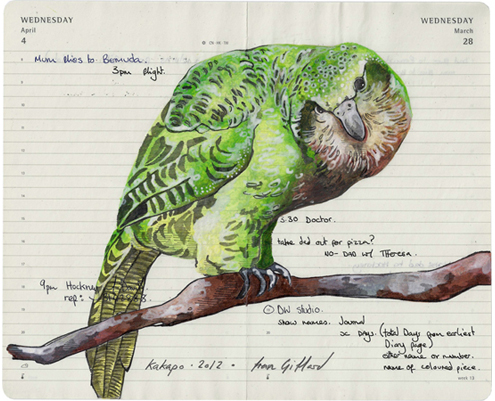 WEDNESDAY
April
4
WEDNESDAY
March
28
Mum flies to Bermuda.
3pm flight.
5.30 Doctor.
take dad out for pizza?
NO - DAD W/ THERESA.
9pm Hockney
rep:
@ DW Studio.
show names. Journal
Days. (total Days from earliest
Diary page)
other name or number.
name of coloured piece.
Kakapo · 2012 ·
week 13